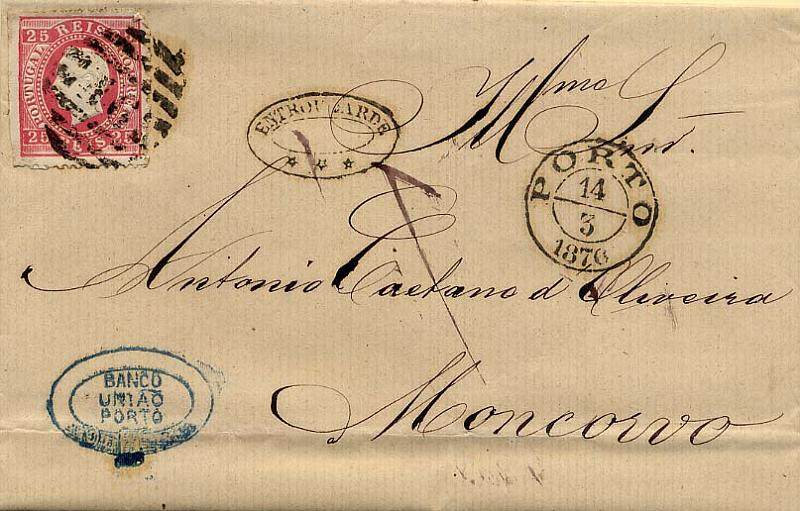 25 REIS
PORTUGAL
25 REIS 25
ENTROU TARDE
Illmo Snr.
PORTO
14
3
1876
Antonio Caetano d Oliveira
Moncorvo
BANCO
UNIÃO
PORTO